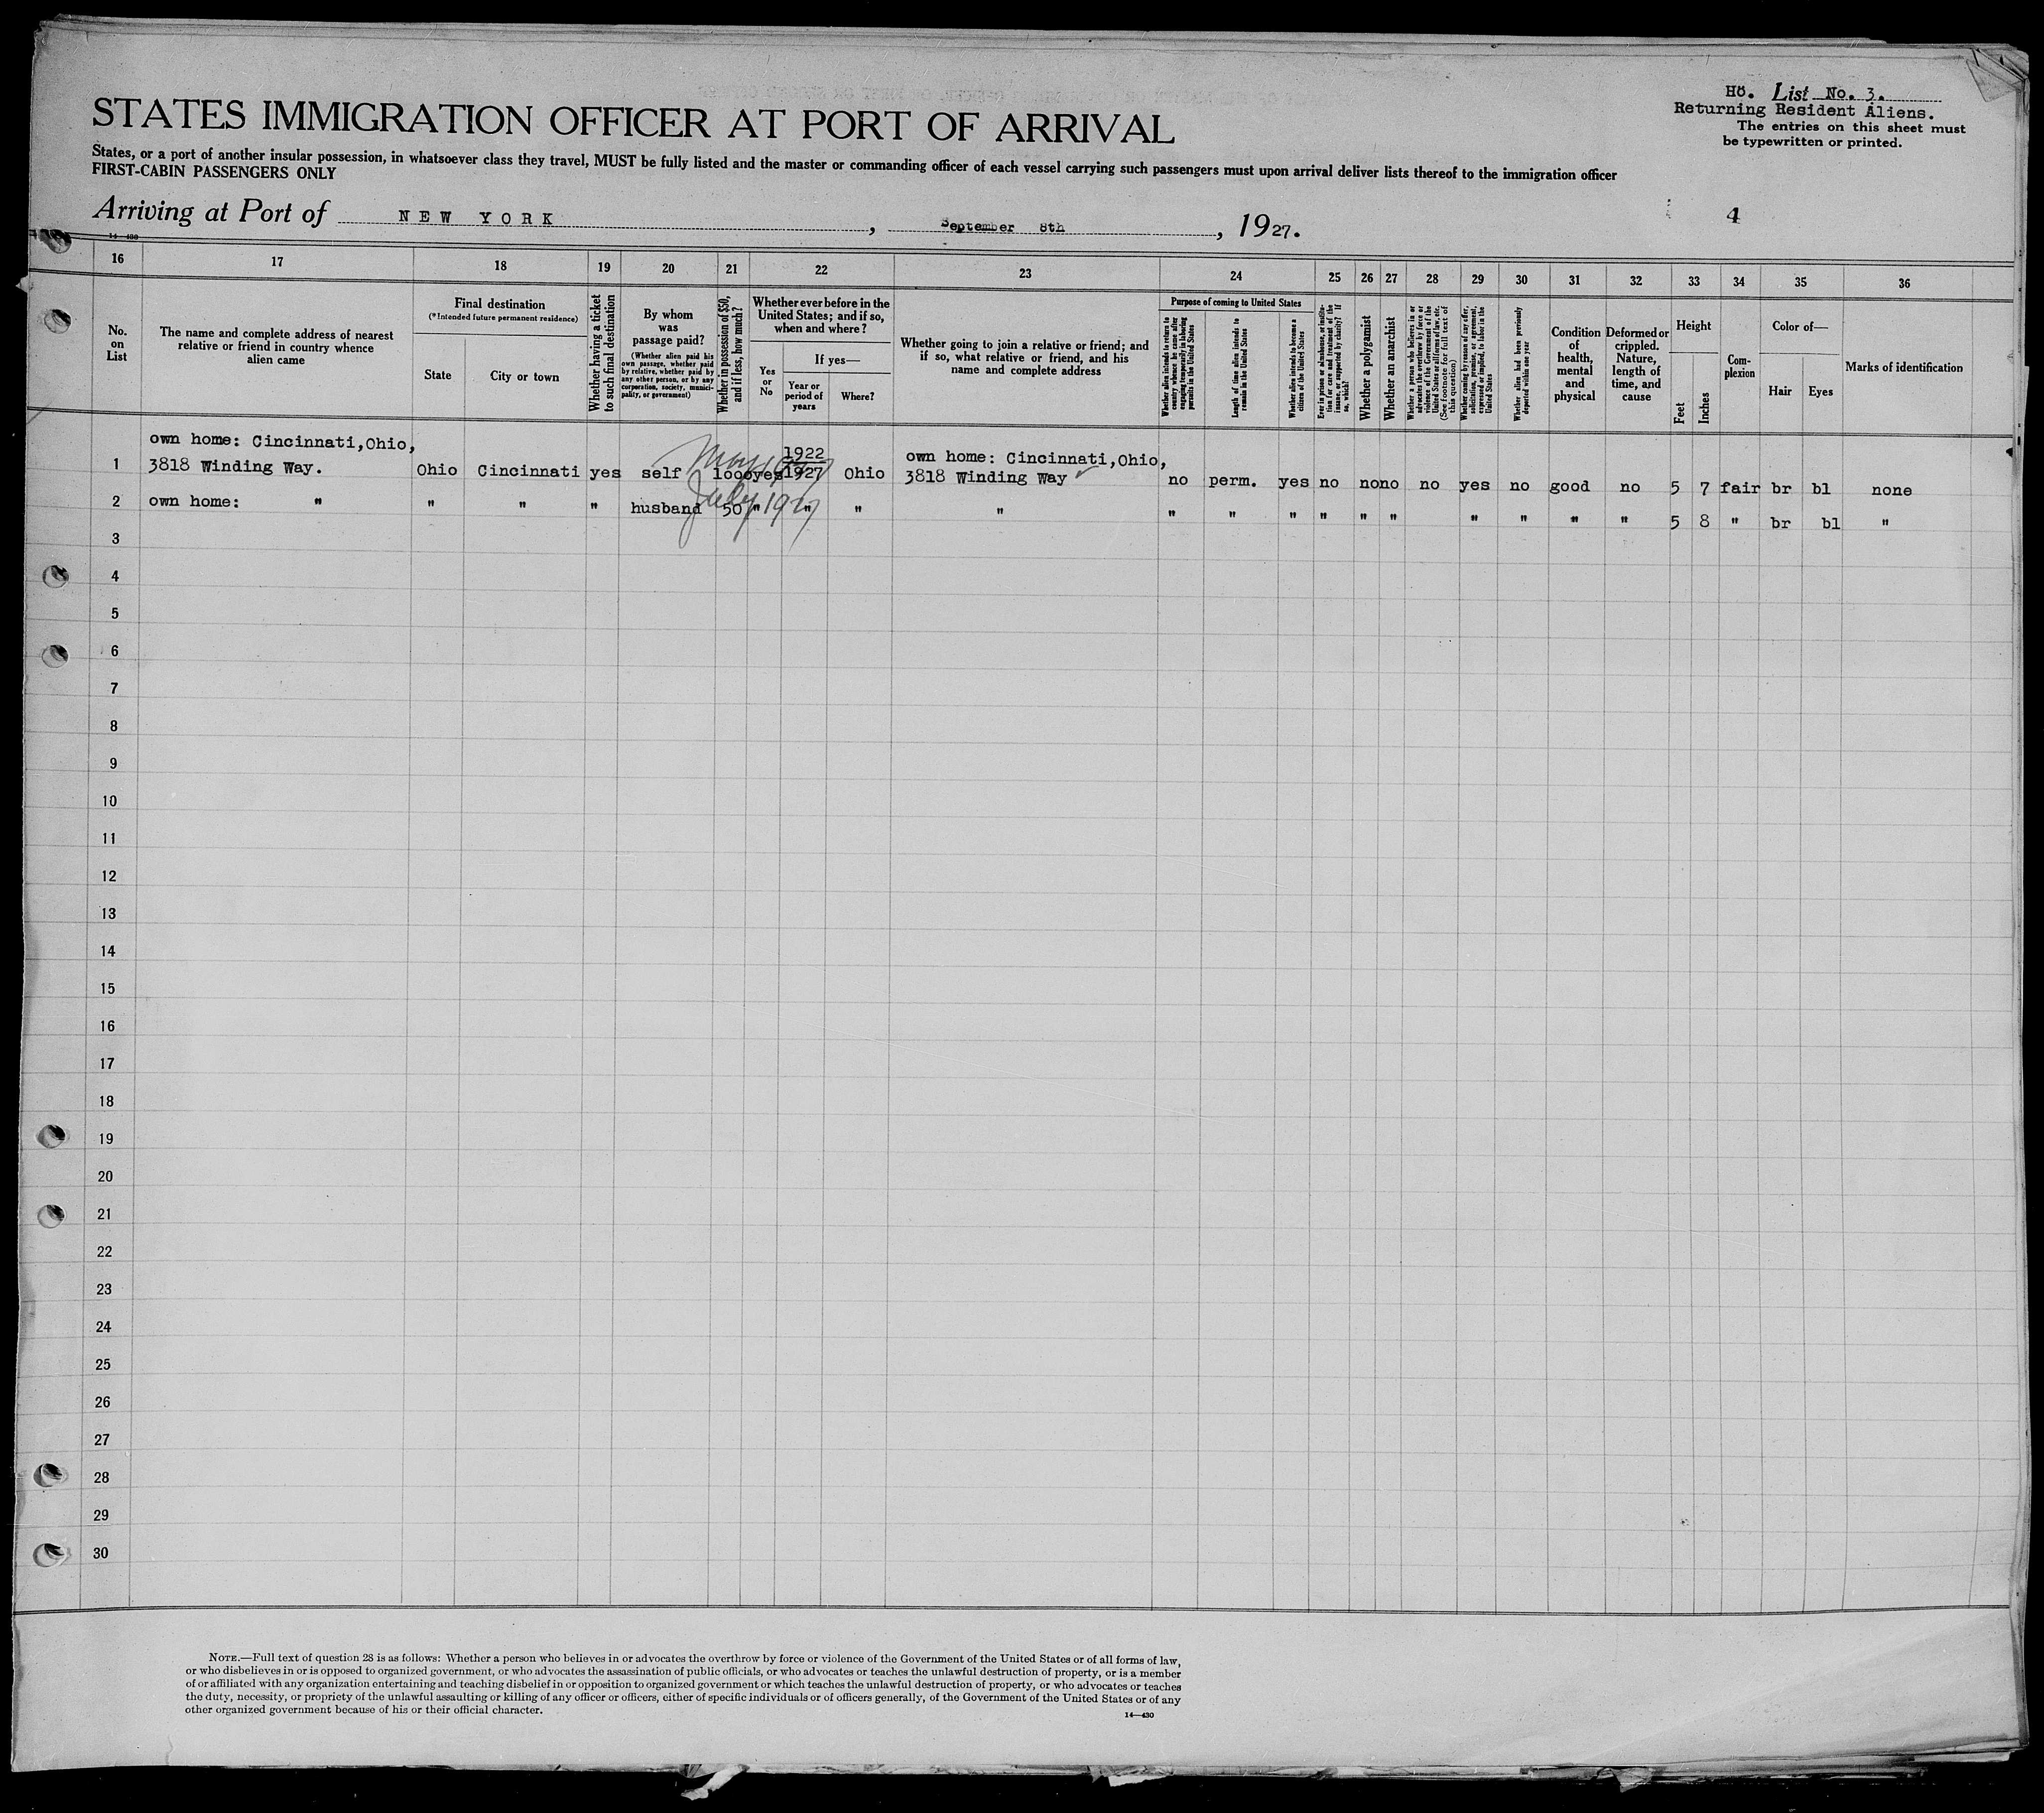 Hö. List No. 3.
Returning Resident Aliens.
The entries on this sheet must
be typewritten or printed.
STATES IMMIGRATION OFFICER AT PORT OF ARRIVAL
States, or a port of another insular possession, in whatsoever class they travel, MUST be fully listed and the master or commanding officer of each vessel carrying such passengers must upon arrival deliver lists thereof to the immigration officer
FIRST-CABIN PASSENGERS ONLY
Arriving at Port of NEW YORK, September 8th, 1927.
4
14—430
16 17 18 19 20 21 22 23 24 25 26 27 28 29 30 31 32 33 34 35 36
No.
on
List
The name and complete address of nearest
relative or friend in country whence
alien came
Final destination
(*Intended future permanent residence)
State
City or town
Whether having a ticket
to such final destination
By whom
was
passage paid?
(Whether alien paid his
own passage, whether paid
by relative, whether paid by
any other person, or by any
corporation, society, munici-
pality, or government)
Whether in possession of $50,
and if less, how much?
Whether ever before in the
United States; and if so,
when and where?
Yes
or
No
If yes—
Year or
period of
years
Where?
Whether going to join a relative or friend; and
if so, what relative or friend, and his
name and complete address
Purpose of coming to United States
Whether alien intends to return to
country whence he came after
engaging temporarily in laboring
pursuits in the United States
Length of time alien intends to
remain in the United States
Whether alien intends to become a
citizen of the United States
Ever in prison or almshouse, or institu-
tion for care and treatment of the
insane, or supported by charity? If
so, which?
Whether a polygamist
Whether an anarchist
Whether a person who believes in or
advocates the overthrow by force or
violence of the Government of the
United States or all forms of law, etc.
(See footnote for full text of
this question)
Whether coming by reason of any offer,
solicitation, promise, or agreement,
expressed or implied, to labor in the
United States
Whether alien had been previously
deported within one year
Condition
of
health,
mental
and
physical
Deformed or
crippled.
Nature,
length of
time, and
cause
Height
Feet
Inches
Com-
plexion
Color of—
Hair
Eyes
Marks of identification
own home: Cincinnati,Ohio,
1 3818 Winding Way. Ohio Cincinnati yes self 1000 yes 1922 1927 Ohio own home: Cincinnati,Ohio,
3818 Winding Way no perm. yes no no no no yes no good no 5 7 fair br bl none
May 1927
2 own home: " " " " husband 50 " " " " " " " " " " " " " " 5 8 " br bl "
July 1927
3
4
5
6
7
8
9
10
11
12
13
14
15
16
17
18
19
20
21
22
23
24
25
26
27
28
29
30
NOTE.—Full text of question 28 is as follows: Whether a person who believes in or advocates the overthrow by force or violence of the Government of the United States or of all forms of law,
or who disbelieves in or is opposed to organized government, or who advocates the assassination of public officials, or who advocates or teaches the unlawful destruction of property, or is a member
of or affiliated with any organization entertaining and teaching disbelief in or opposition to organized government or which teaches the unlawful destruction of property, or who advocates or teaches
the duty, necessity, or propriety of the unlawful assaulting or killing of any officer or officers, either of specific individuals or of officers generally, of the Government of the United States or of any
other organized government because of his or their official character.
14—430